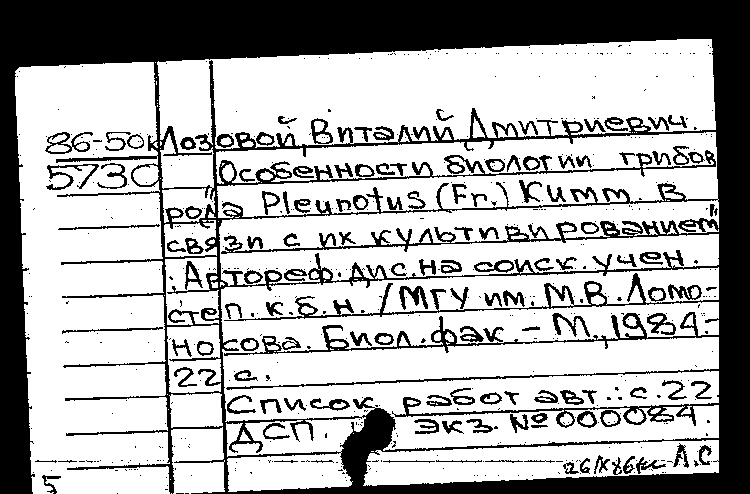 86-50к Лозовой, Виталий Дмитриевич.
5730 Особенности биологии грибов
рода "Pleurotus (Fr.) Kumm. в
связи с их культивированием"
: Автореф. дис. на соиск. учен.
степ. к.б.н. /МГУ им. М.В. Ломо-
носова. Биол. фак. - М., 1984.-
22 с.
Список работ авт.: с. 22.
ДСП. экз. № 000084.
Л.С
5